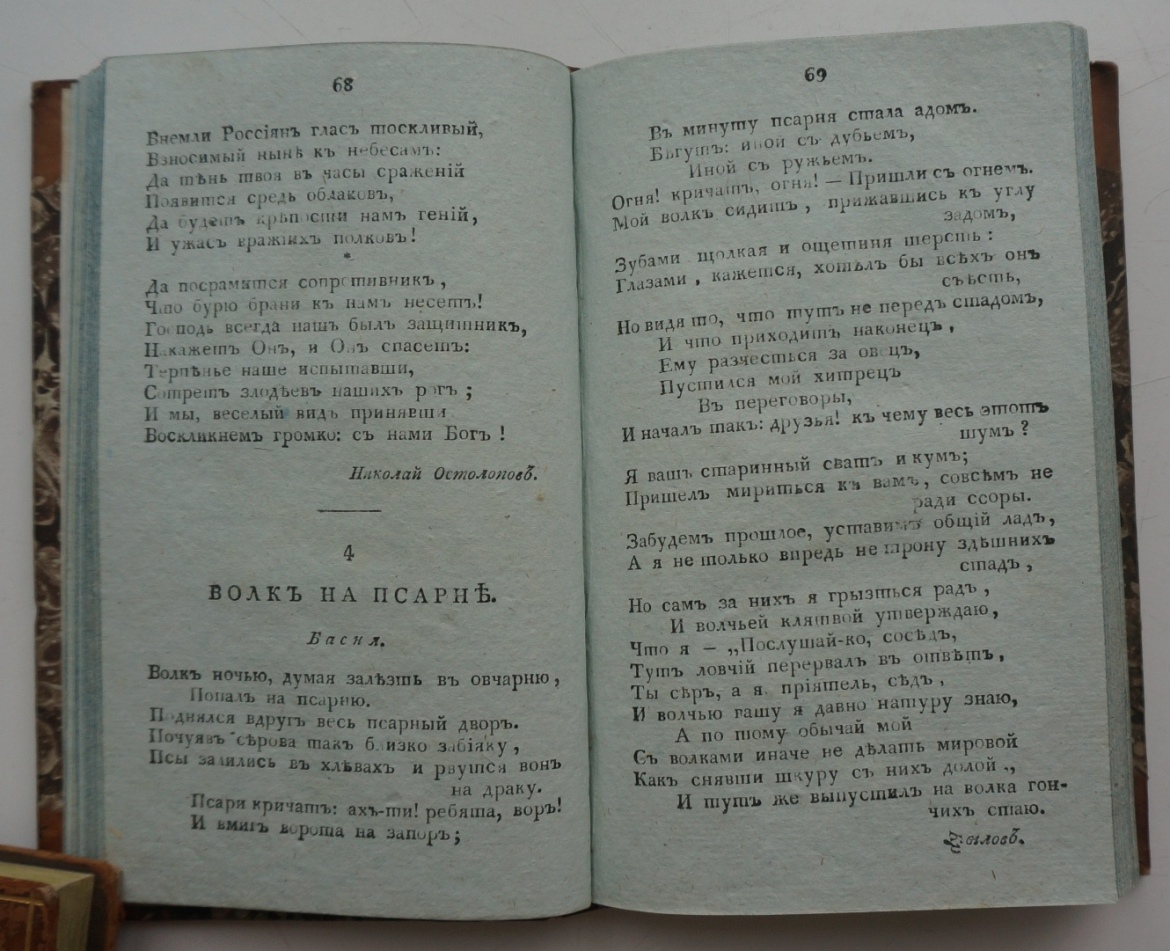 68
Внемли Россіянъ гласъ тоскливый,
Взносимый нынѣ къ небесамъ:
Да тѣнь твоя въ часы сраженій
Появится средь облаковъ,
Да будетъ крѣпости нам геній,
И ужасъ вражихъ полковъ!
*
Да посрамится сопротивникъ,
Что бурю брани къ намъ несетъ!
Господь всегда нашъ былъ защитникъ,
Накажетъ Онъ, и Онъ спасетъ:
Терпѣнье наше испытавши,
Сотретъ злодѣевъ нашихъ рогъ;
И мы, веселый видъ принявши
Воскликнемъ громко: съ нами Богъ!
Николай Остолоповъ.
4
ВОЛКЪ НА ПСАРНѢ.
Басня.
Волкъ ночью, думая залѣзть въ овчарню,
Попалъ на псарню.
Поднялся вдругъ весь псарный дворъ.
Почуявъ сѣрова такъ близко забіяку,
Псы залились въ хлѣвахъ и рвутся вонъ
на драку.
Псари кричатъ: ахъ-ти! ребята, воръ!
И вмигъ ворота на запоръ;
69
Въ минуту псарня стала адомъ.
Бѣгутъ: иной съ дубьемъ,
Иной съ ружьемъ.
Огня! кричатъ, огня! — Пришли съ огнемъ.
Мой волкъ сидитъ, прижавшись къ углу
задомъ,
Зубами щолкая и ощетиня шерсть:
Глазами, кажется, хотѣлъ бы всѣхъ онъ
съѣсть,
Но видя то, что тутъ не передъ стадомъ,
И что приходитъ наконецъ,
Ему разчесться за овецъ,
Пустился мой хитрецъ
Въ переговоры,
И началъ такъ: друзья! къ чему весь этотъ
шумъ?
Я вашъ старинный сватъ и кумъ;
Пришелъ мириться къ вамъ, совсѣмъ не
ради ссоры.
Забудемъ прошлое, уставимъ общій ладъ,
А я не только впредь не трону здѣшнихъ
стадъ,
Но самъ за нихъ я грызться радъ,
И волчьей клятвой утверждаю,
Что я — „Послушай-ко, сосѣдъ,
Тутъ ловчій перервалъ въ отвѣтъ,
Ты сѣръ, а я, пріятель, сѣдъ,
И волчью вашу я давно натуру знаю,
А по тому обычай мой
Съ волками иначе не дѣлать мировой
Какъ снявши шкуру съ нихъ долой„,
И тутъ же выпустилъ на волка гон-
чихъ стаю.